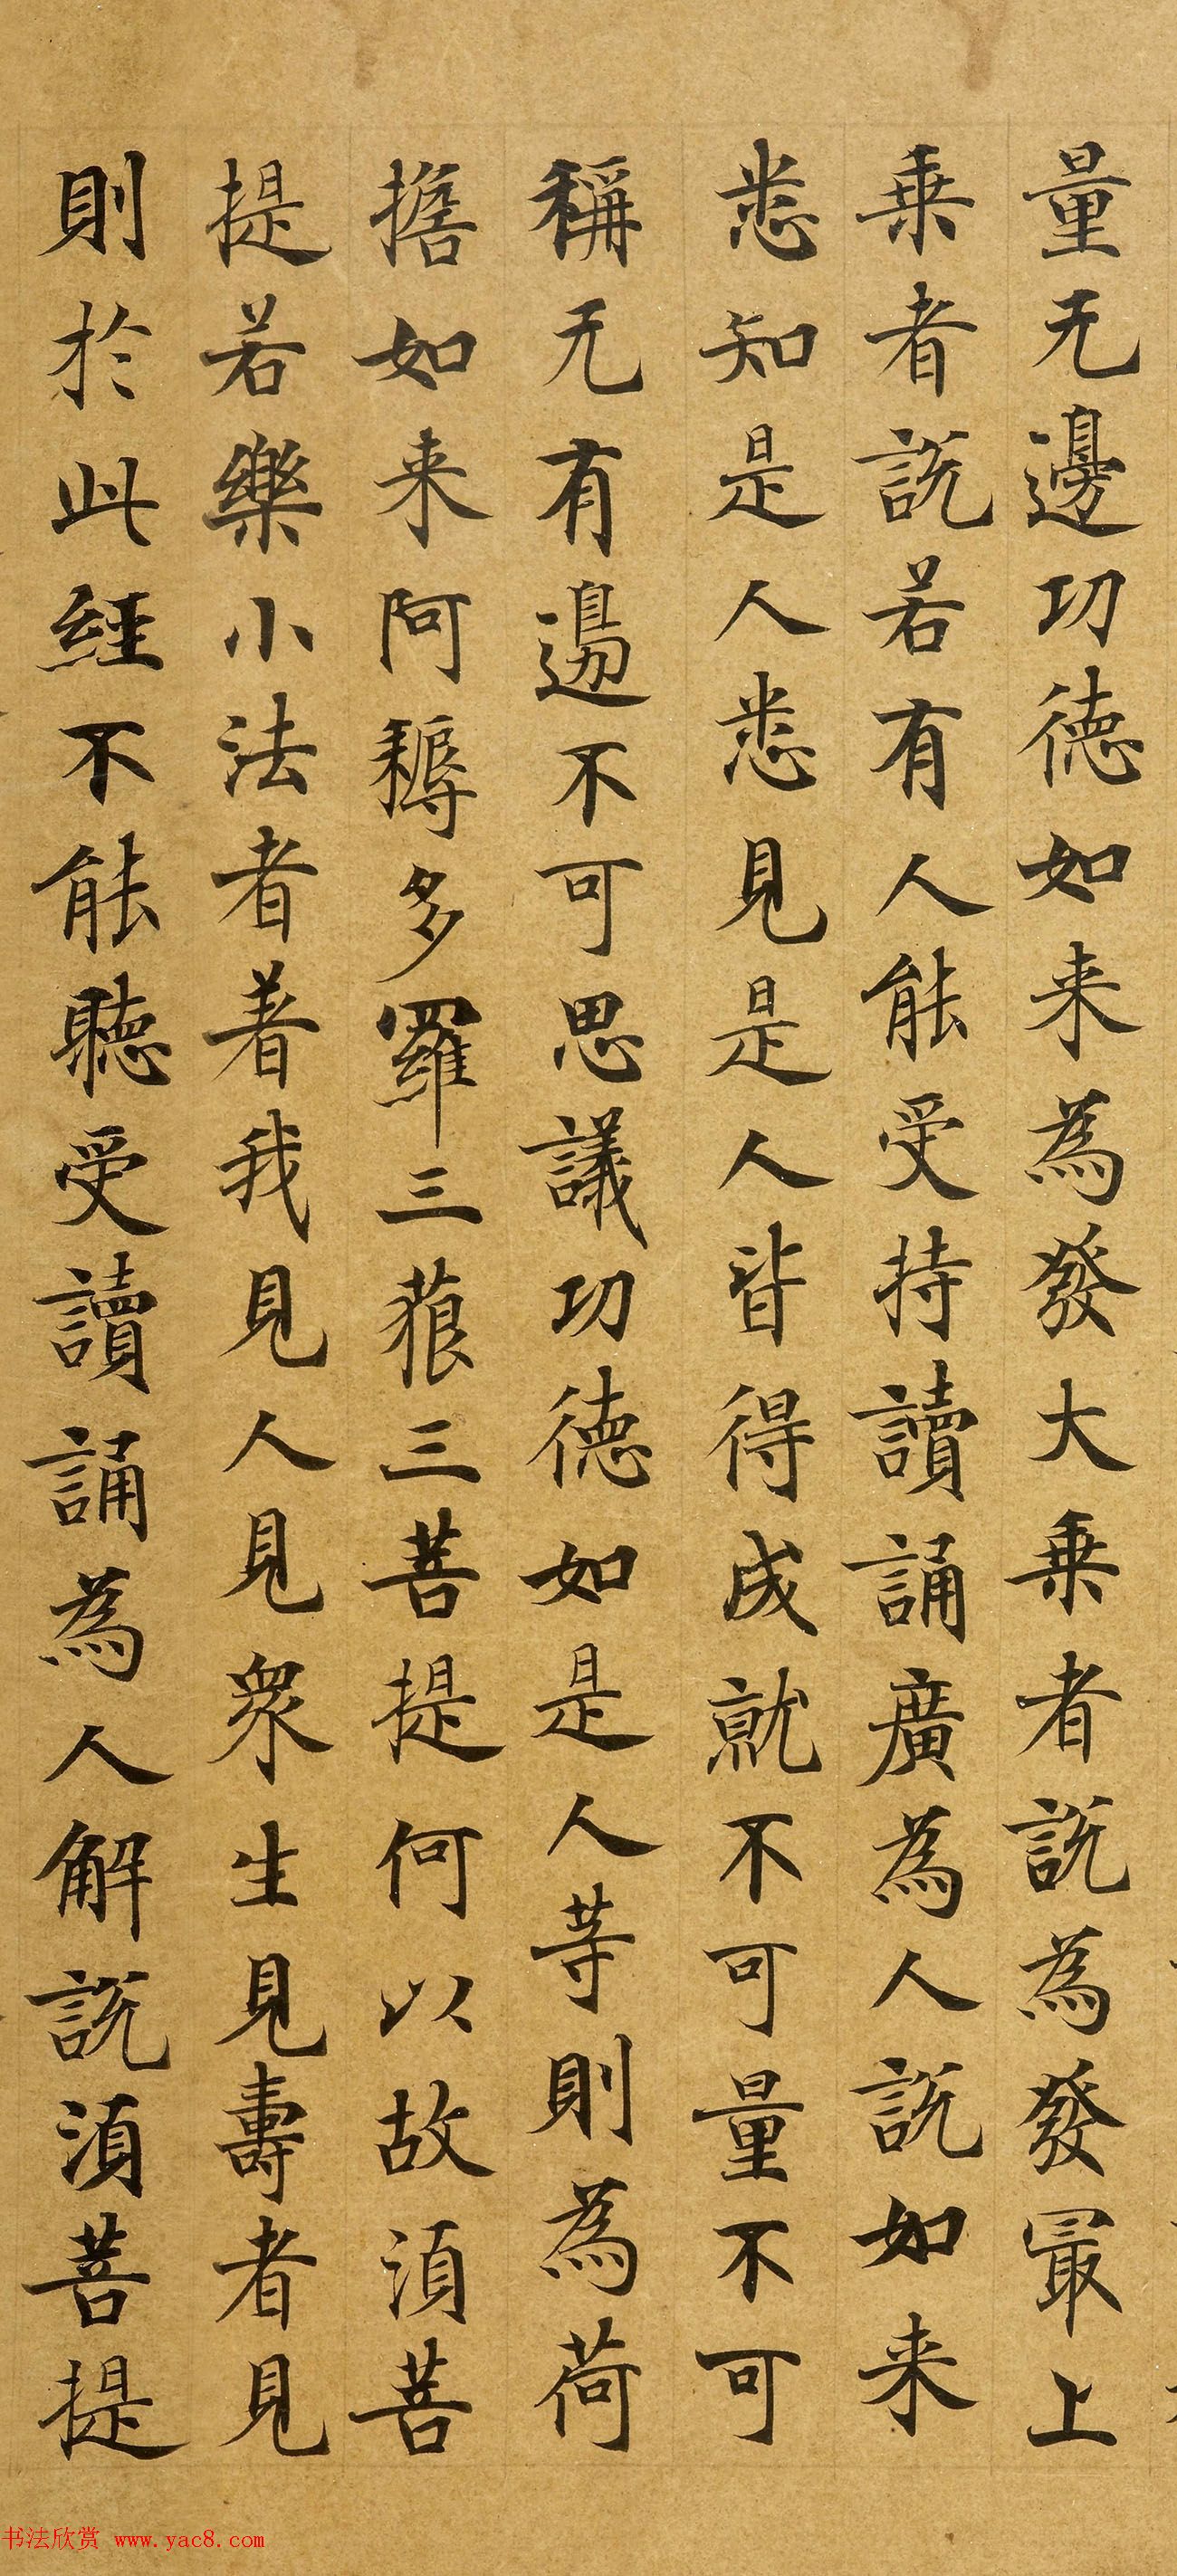 量无邊功德如来為發大乗者説為發冣上
乗者説若有人能受持讀誦廣為人説如来
悉知是人悉見是人皆得成就不可量不可
稱无有邊不可思議功德如是人等則為荷
擔如来阿耨多羅三藐三菩提何以故湏菩
提若樂小法者著我見人見衆生見壽者見
則於此經不能聽受讀誦為人解説湏菩提
书法欣赏 www.yac8.com